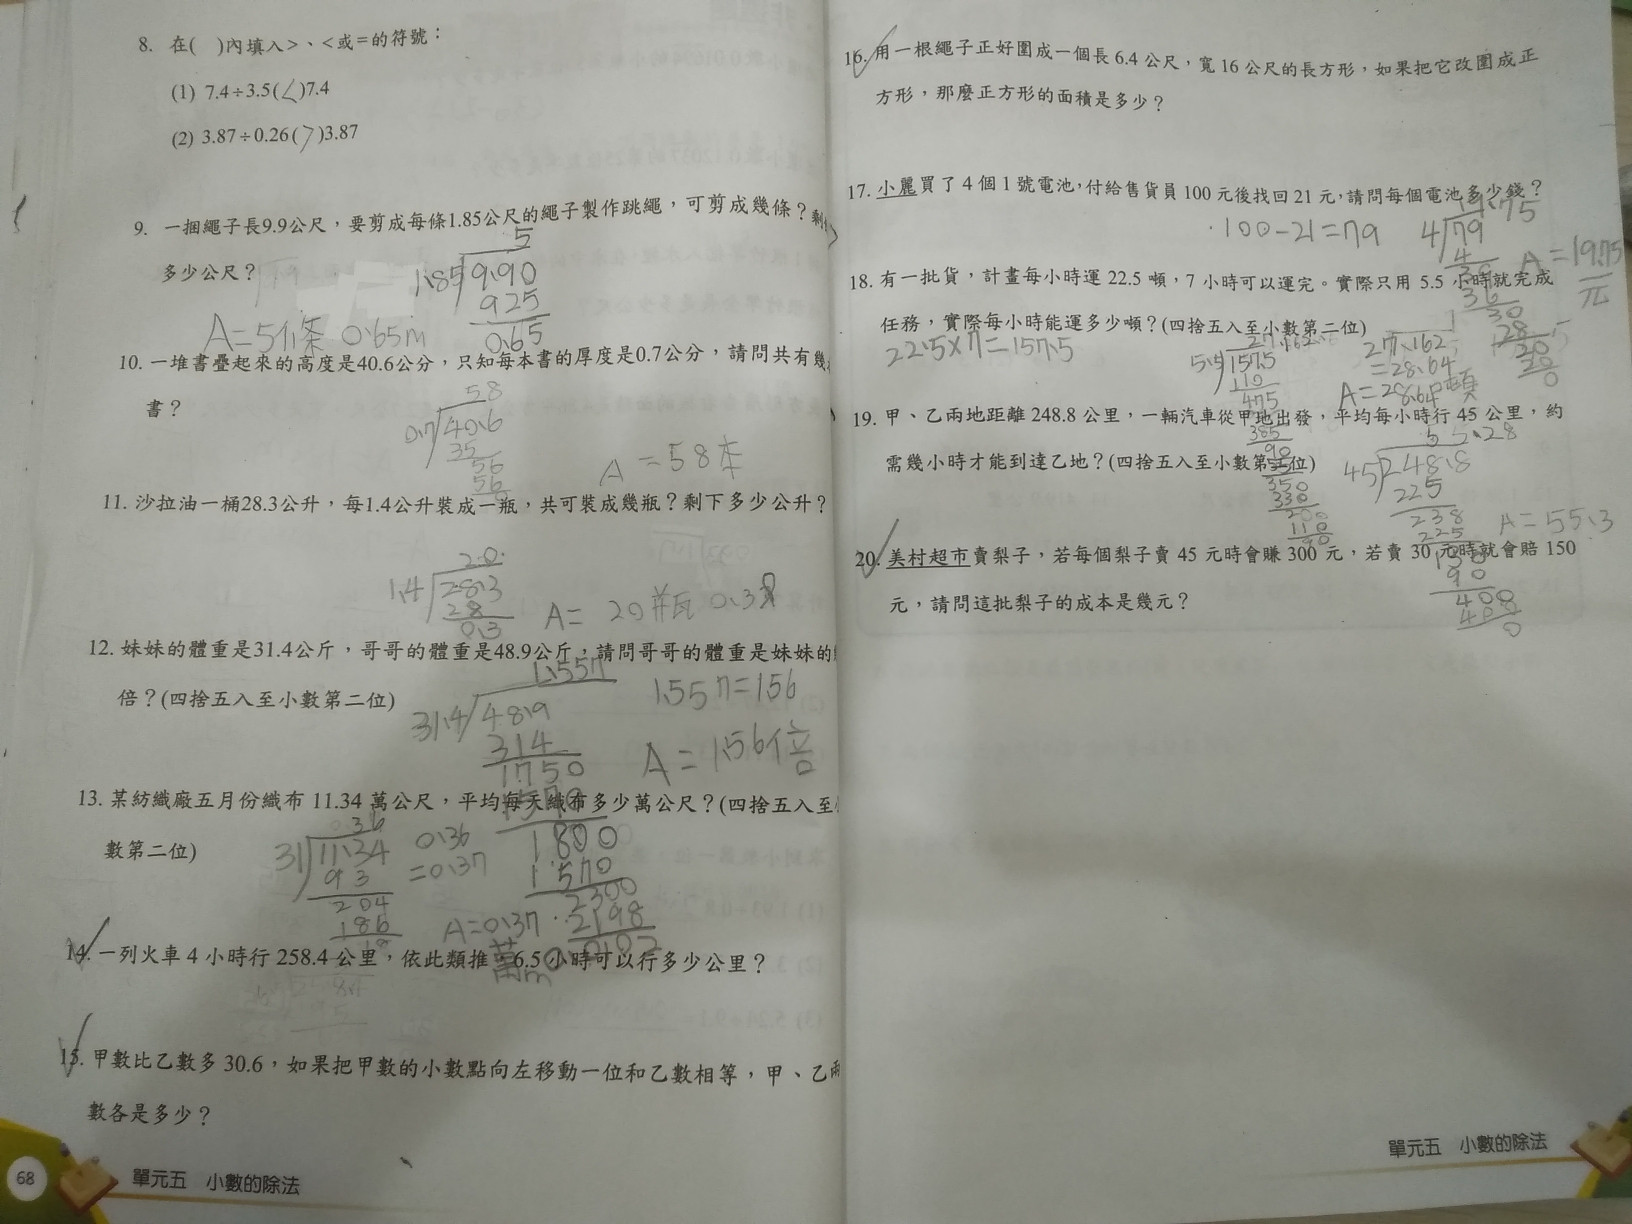 8. 在( )內填入>、<或=的符號：
(1) 7.4÷3.5(<)7.4
(2) 3.87÷0.26(>)3.87
9. 一捆繩子長9.9公尺，要剪成每條1.85公尺的繩子製作跳繩，可剪成幾條？剩
多少公尺？
5
1.85 9.90
925
0.65
A=5條 0.65m
10. 一堆書疊起來的高度是40.6公分，只知每本書的厚度是0.7公分，請問共有幾
書？
58
0.7 40.6
35
56
56
A=58本
11. 沙拉油一桶28.3公升，每1.4公升裝成一瓶，共可裝成幾瓶？剩下多少公升？
20.
1.4 28.3
28
0.3
A=20瓶 0.3l
12. 妹妹的體重是31.4公斤，哥哥的體重是48.9公斤，請問哥哥的體重是妹妹的
倍？(四捨五入至小數第二位)
1.557
31.4 48.9
314
1750
1570
1800
1570
2300
2198
0.102
1.557=1.56
A=1.56倍
13. 某紡織廠五月份織布 11.34 萬公尺，平均每天織布多少萬公尺？(四捨五入至
數第二位)
0.36
31 11.34
93
204
186
18
0.36
=0.37
A=0.37
萬m
14. 一列火車 4 小時行 258.4 公里，依此類推，6.5 小時可以行多少公里？
15. 甲數比乙數多 30.6，如果把甲數的小數點向左移動一位和乙數相等，甲、乙兩
數各是多少？
68
單元五 小數的除法
16. 用一根繩子正好圍成一個長 6.4 公尺，寬 16 公尺的長方形，如果把它改圍成正
方形，那麼正方形的面積是多少？
17. 小麗買了 4 個 1 號電池，付給售貨員 100 元後找回 21 元，請問每個電池多少錢？
100-21=79
19.75
4 79
4
39
36
30
28
20
20
0
A=19.75
元
18. 有一批貨，計畫每小時運 22.5 噸，7 小時可以運完。實際只用 5.5 小時就完成
任務，實際每小時能運多少噸？(四捨五入至小數第二位)
22.5×7=157.5
5.5 157.5
110
475
385
90
350
330
200
110
90
27.162
=28.64
A=28.64噸
19. 甲、乙兩地距離 248.8 公里，一輛汽車從甲地出發，平均每小時行 45 公里，約
需幾小時才能到達乙地？(四捨五入至小數第二位)
5 2.28
45 248.8
225
238
225
130
90
400
400
0
A=55.3
20. 美村超市賣梨子，若每個梨子賣 45 元時會賺 300 元，若賣 30 元時就會賠 150
元，請問這批梨子的成本是幾元？
單元五 小數的除法